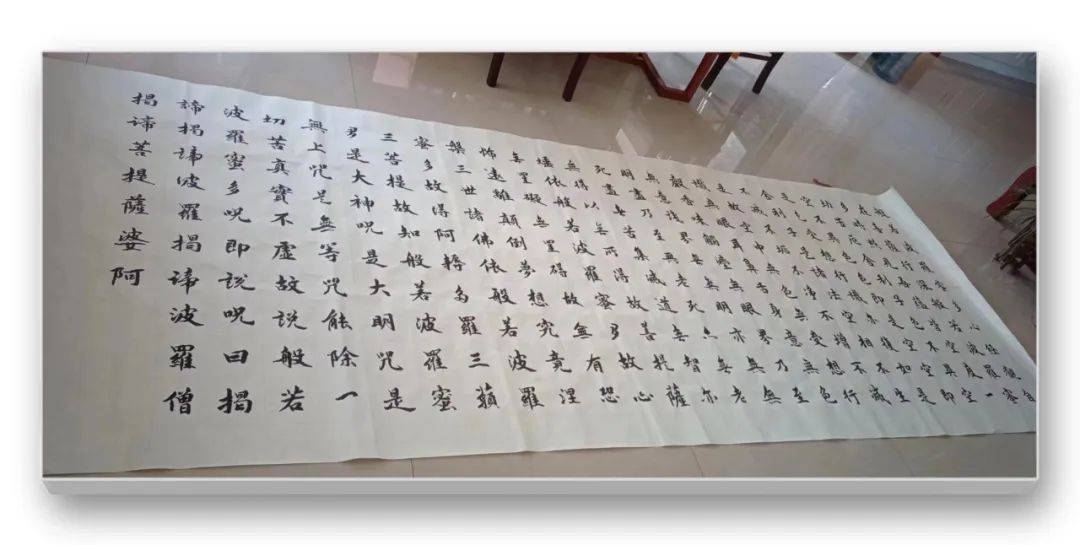 般若波羅蜜多心經觀自
在菩薩行深般若波羅蜜
多時照見五蘊皆空度一
切苦厄舍利子色不異空
空不異色色即是空空即
是色受想行識亦復如是
舍利子是諸法空相不生
不滅不垢不淨不增不減
是故空中無色無受想行
識無眼耳鼻舌身意無色
聲香味觸法無眼界乃至
無意識界無無明亦無無
明盡乃至無老死亦無老
死盡無苦集滅道無智亦
無得以無所得故菩提薩
埵依般若波羅蜜多故心
無罣礙無罣碍故無有恐
怖遠離顛倒夢想究竟涅
槃三世諸佛依般若波羅
蜜多故得阿耨多羅三藐
三菩提故知般若波羅蜜
多是大神呪是大明咒是
無上咒是無等咒能除一
切苦真實不虛故說般若
波羅蜜多呪即說呪曰揭
諦揭諦波羅揭諦波羅僧
揭諦菩提薩婆阿